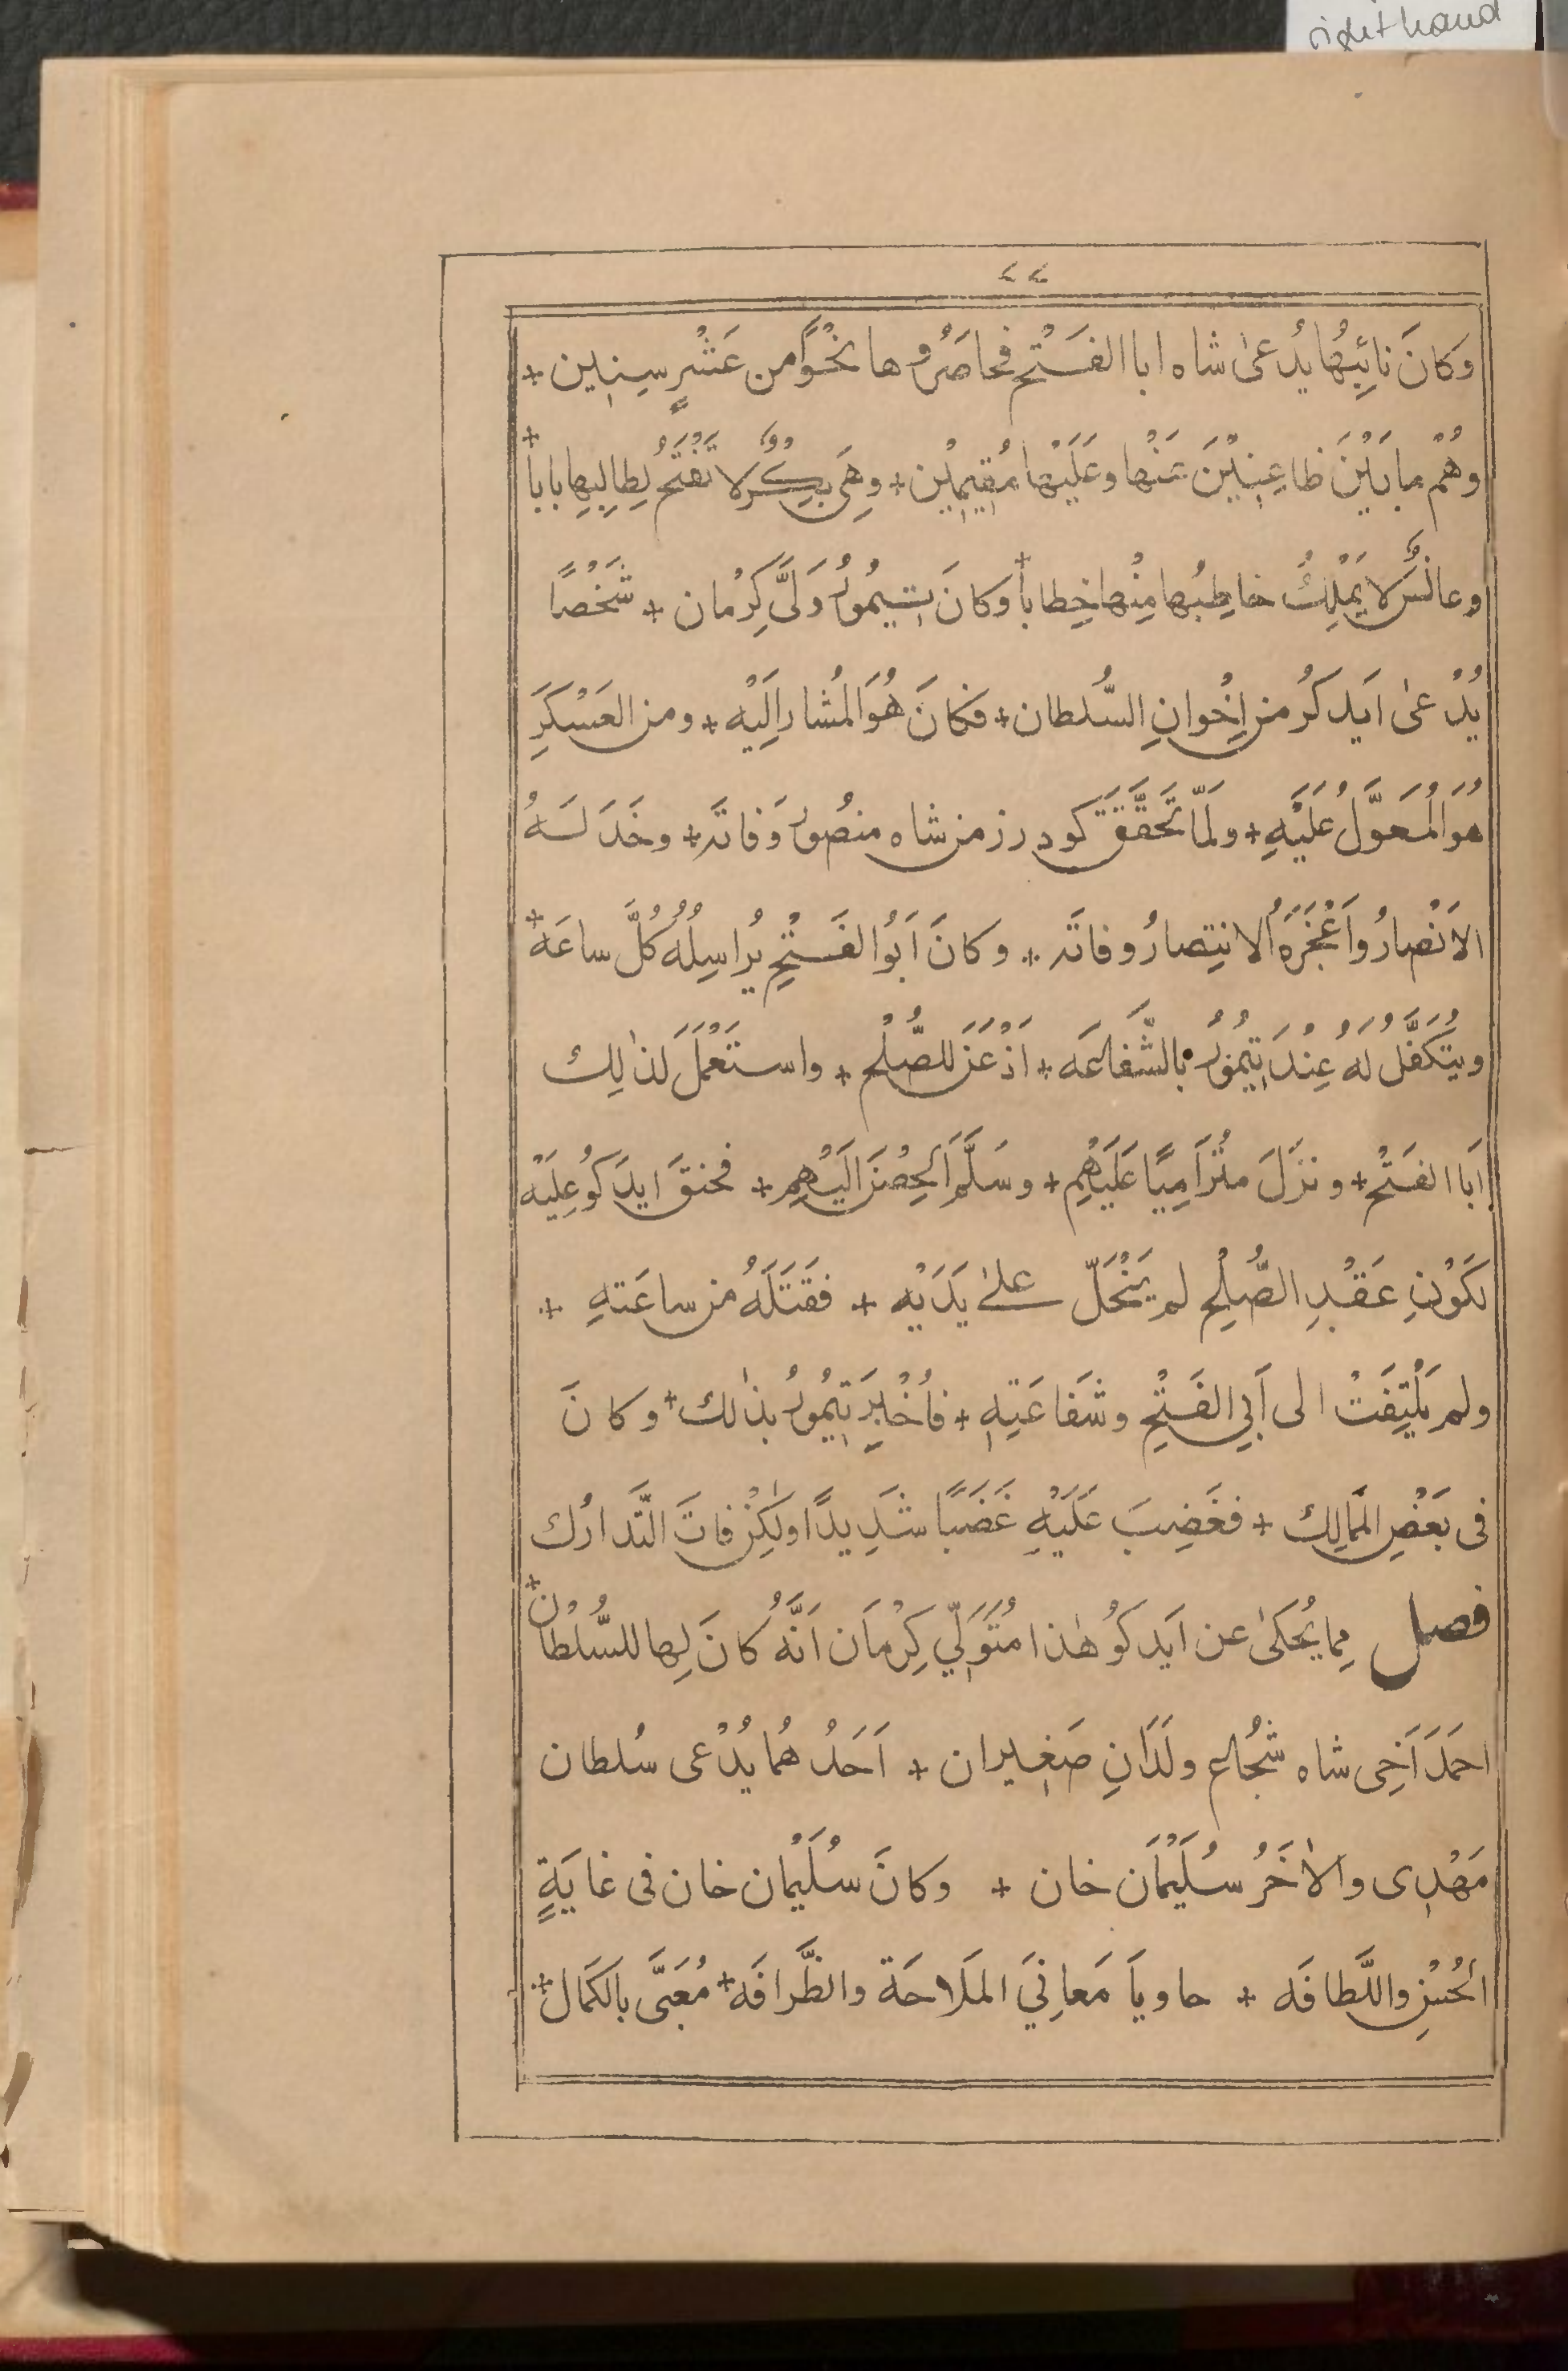 right hand
٤٤
وَكانَ نائِبُها يُدعىٰ شاه ابا الفَتْح فحاصَرُوها نَحْوًا من عَشْرِ سِنِين +
وهُمْ ما بَيْنَ ظاعِنِيْنَ عَنْها وعَلَيْها مُقِيمِيْن + وهِيَ بِكْرٌ لا تَفْتَحُ لِطالِبِها باباً +
وعانسٌ لا يَمْلِكُ خاطِبُها مِنْها خِطاباً + وكانَ تيمُورُ وَلَّى كِرْمان + شَخْصًا
يُدْعىٰ ايدكُو من اِخْوانِ السُّلطان + فكانَ هُوَ المُشارَ اِلَيْه + ومن العَسْكَرِ
هُوَ المُعَوَّلُ عَلَيْهِ + ولَمّا تَحَقَّقَ كودرز من شاه منصُور وَفاتَه + وخَذَلَهُ
الاَنْصارُ واَعْجَزَهُ الانتِصارُ وفاتَه + وكانَ اَبُو الفَتْحِ يُراسِلُهُ كُلَّ ساعَه +
ويَتَكَفَّلُ لهُ عِنْدَ تِيمُورُ بالشَّفاعَه + اَذْعَنَ للصُّلْح + واستَعْمَلَ لذٰلِك
اَبا الفَتْح + ونَزَلَ متَرامِيًا عَلَيْهِم + وسَلَّمَ الحِصْنَ اِلَيْهِم + فحنقَ ايدَكُو عليْه
لكَوْنِ عَقْدِ الصُّلْحِ لم يَنْحَلّ علىٰ يَدَيْه + فقَتَلَهُ من ساعَتهِ +
ولم يَلْتَفِتْ الى اَبِي الفَتْحِ وشَفاعَتِهِ + فاُخْبِرَ تِيمُورُ بذٰلك + وكانَ
فى بَعْضِ المَمالِك + فغَضِبَ عَلَيْهِ غَضَبًا شَدِيدًا ولٰكِنْ فاتَ التَّدارُك
فصل مِما يُحكىٰ عن اَيدكُو هٰذا مُتَوَلِّي كِرْمان اَنَّهُ كانَ لِها للسُّلْطان +
احمَدَ اَخِى شاه شُجُاع ولَدَانِ صَغِيران + اَحَدُ هُما يُدْعى سُلطان
مَهْدِى والاٰخَرُ سُلَيْمان خان + وكانَ سُلَيْمان خان فى غايَةِ
الحُسْنِ واللَّطافَه + حاوياً مَعانِيَ المَلاحَة والظَّرافَه + مُعَبَّى بالكَمال +